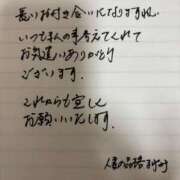 長いお付き合いになりますね
いつもまんの事考えてくれて
お気遣いありがとう
ございます。
これからも宜しく
お願いいたします。